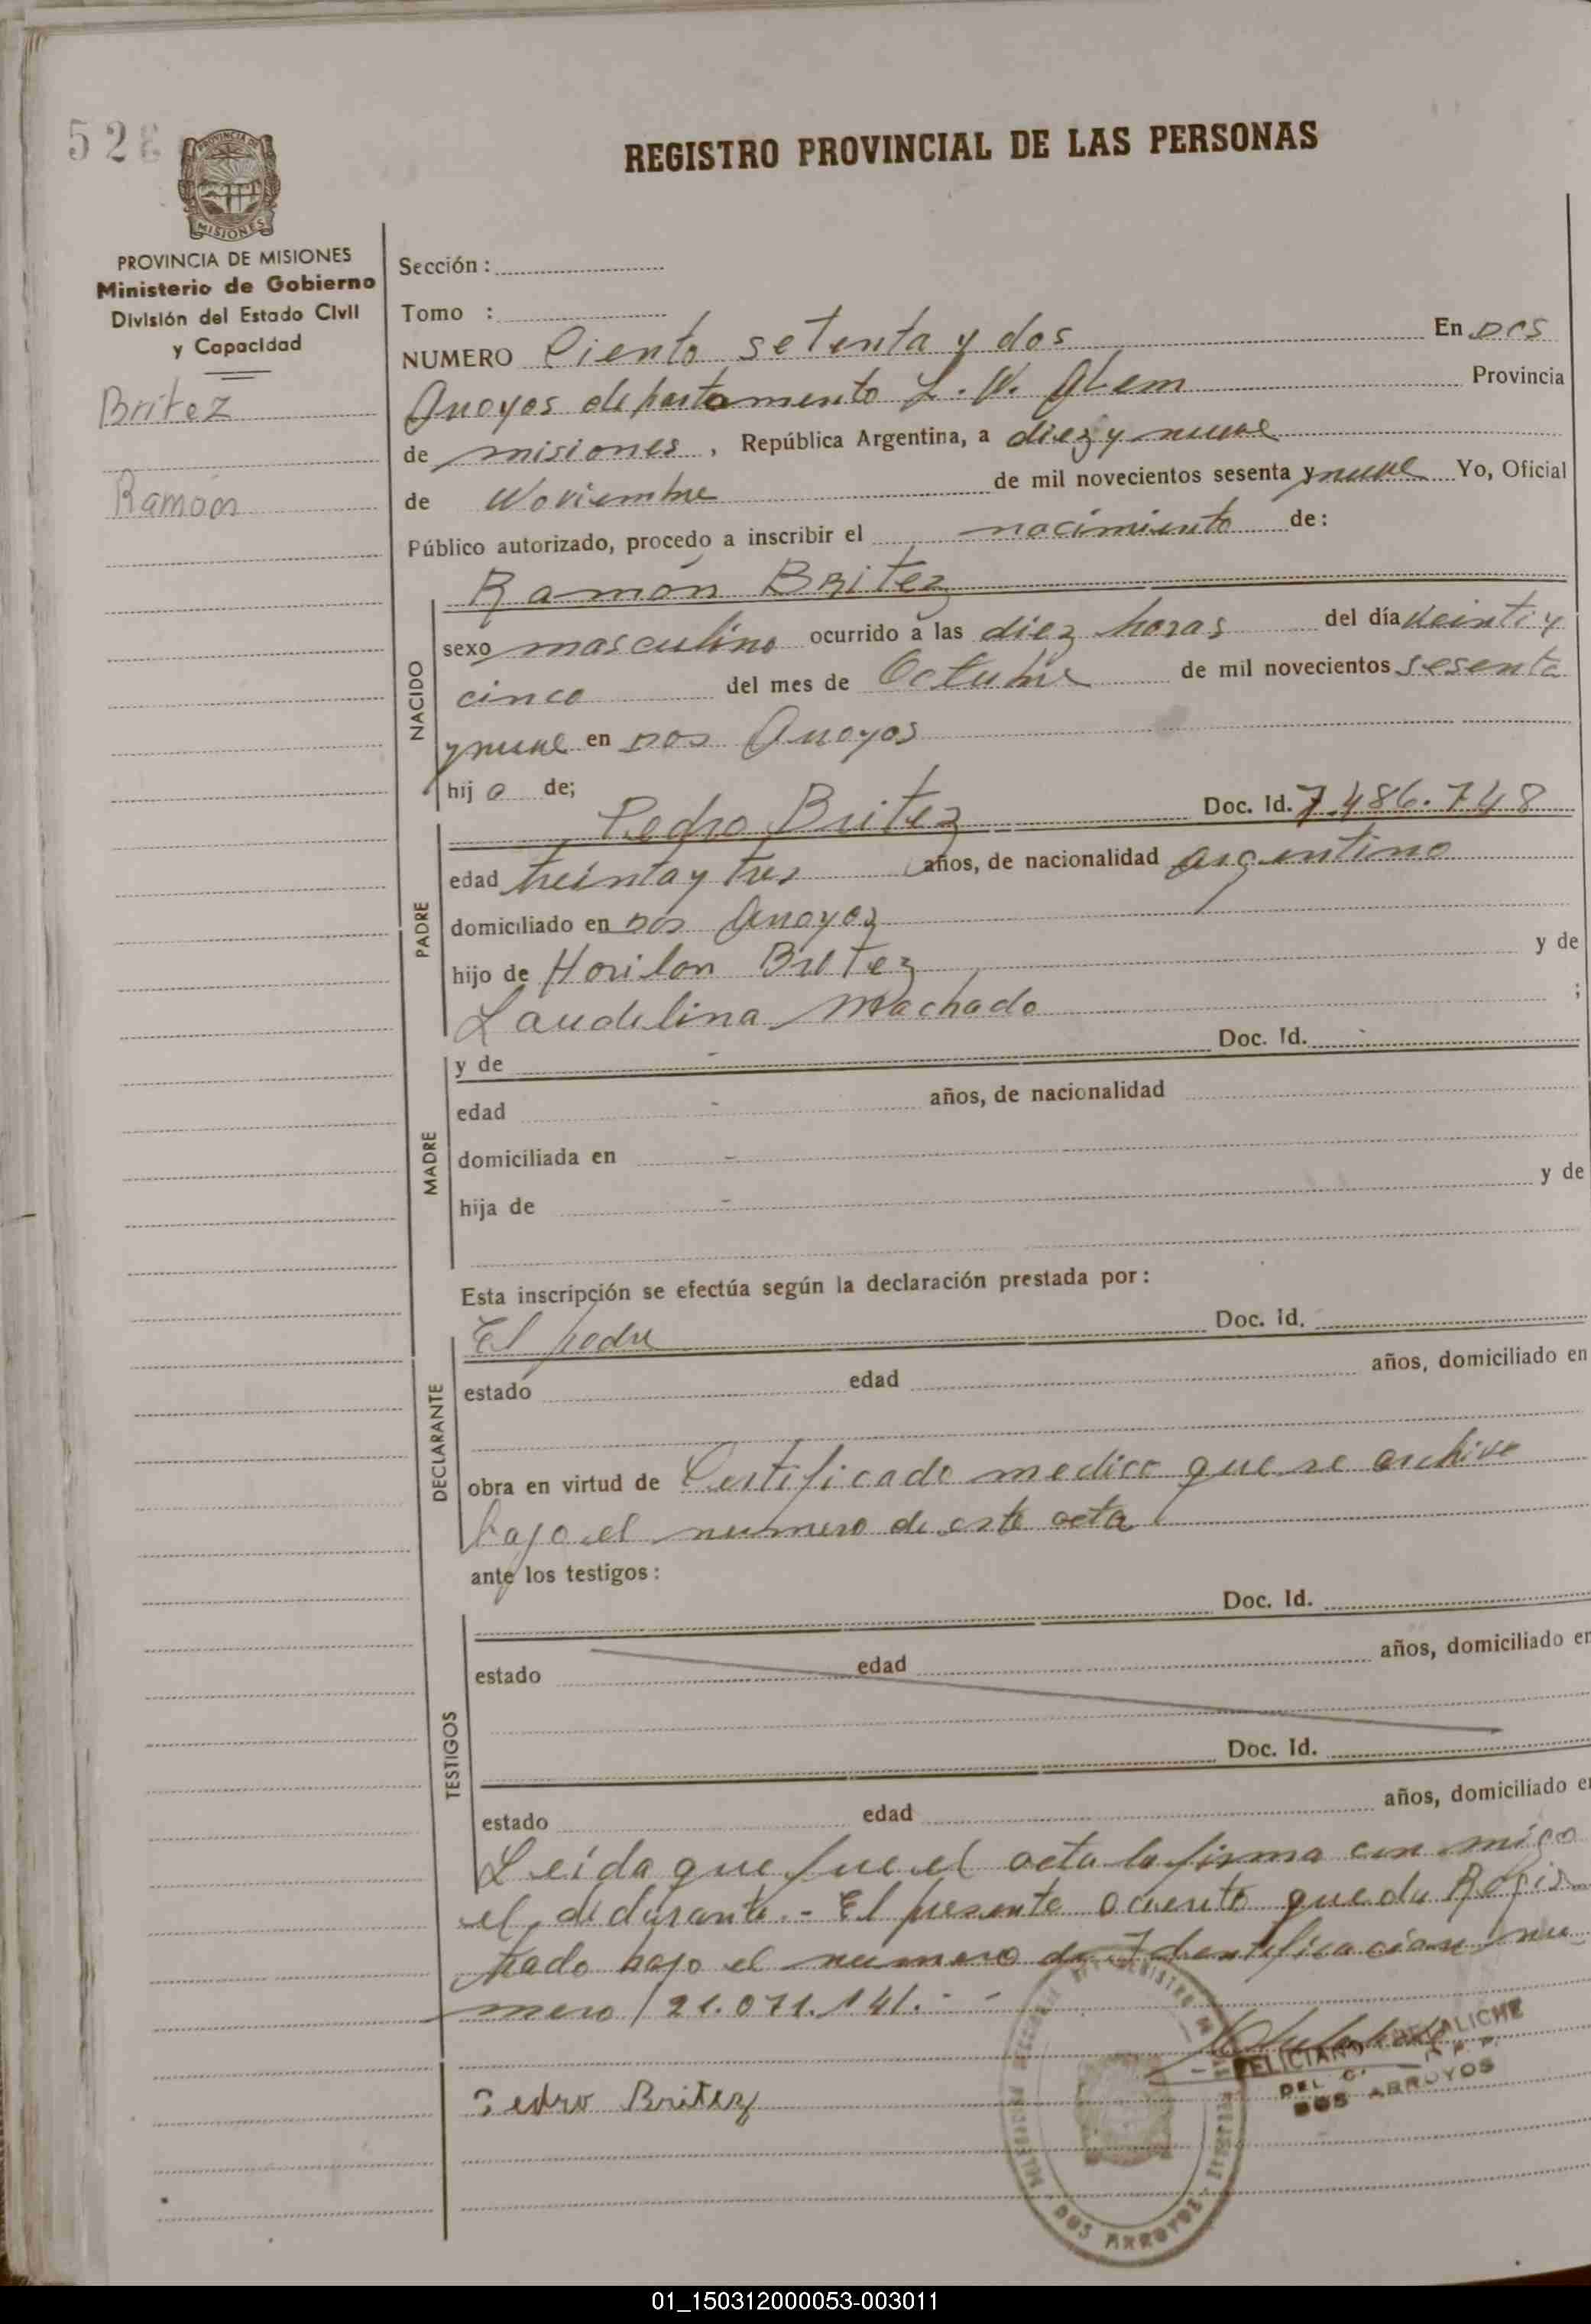 528
PROVINCIA DE
MISIONES
REGISTRO PROVINCIAL DE LAS PERSONAS
PROVINCIA DE MISIONES
Ministerio de Gobierno
División del Estado Civil
y Capacidad
Britez
Ramón
Sección :
Tomo :
NUMERO Ciento setenta y dos En Dos
Arroyos departamento L. N. Alem Provincia
de misiones , República Argentina, a diez y nueve
de Noviembre de mil novecientos sesenta y nueve Yo, Oficial
Público autorizado, procedo a inscribir el nacimiento de :
Ramón Britez
NACIDO
sexo masculino ocurrido a las diez horas del día veinti y
cinco del mes de Octubre de mil novecientos sesenta
y nueve en Dos Arroyos
hij o de;
PADRE
Pedro Britez Doc. Id. 7.486.748
edad treinta y tres años, de nacionalidad argentino
domiciliado en Dos Arroyos
hijo de Horilon Britez y de
Laudelina Machado ;
MADRE
y de - Doc. Id. -
edad - años, de nacionalidad
domiciliada en -
hija de - y de
Esta inscripción se efectúa según la declaración prestada por :
DECLARANTE
El padre Doc. Id.
estado edad años, domiciliado en
obra en virtud de Certificado medico que se archiva
bajo el numero de esta acta
ante los testigos :
TESTIGOS
Doc. Id.
estado edad años, domiciliado en
Doc. Id.
estado edad años, domiciliado en
Leída que fue el acta la firma con migo
el declarante. - El presente queda Regis
trado bajo el numero de Identificacion nu-
mero 21.071.141. - -
Pedro Britez
FELICIANO
DEL
DOS ARROYOS
DOS ARROYOS
01_150312000053-003011